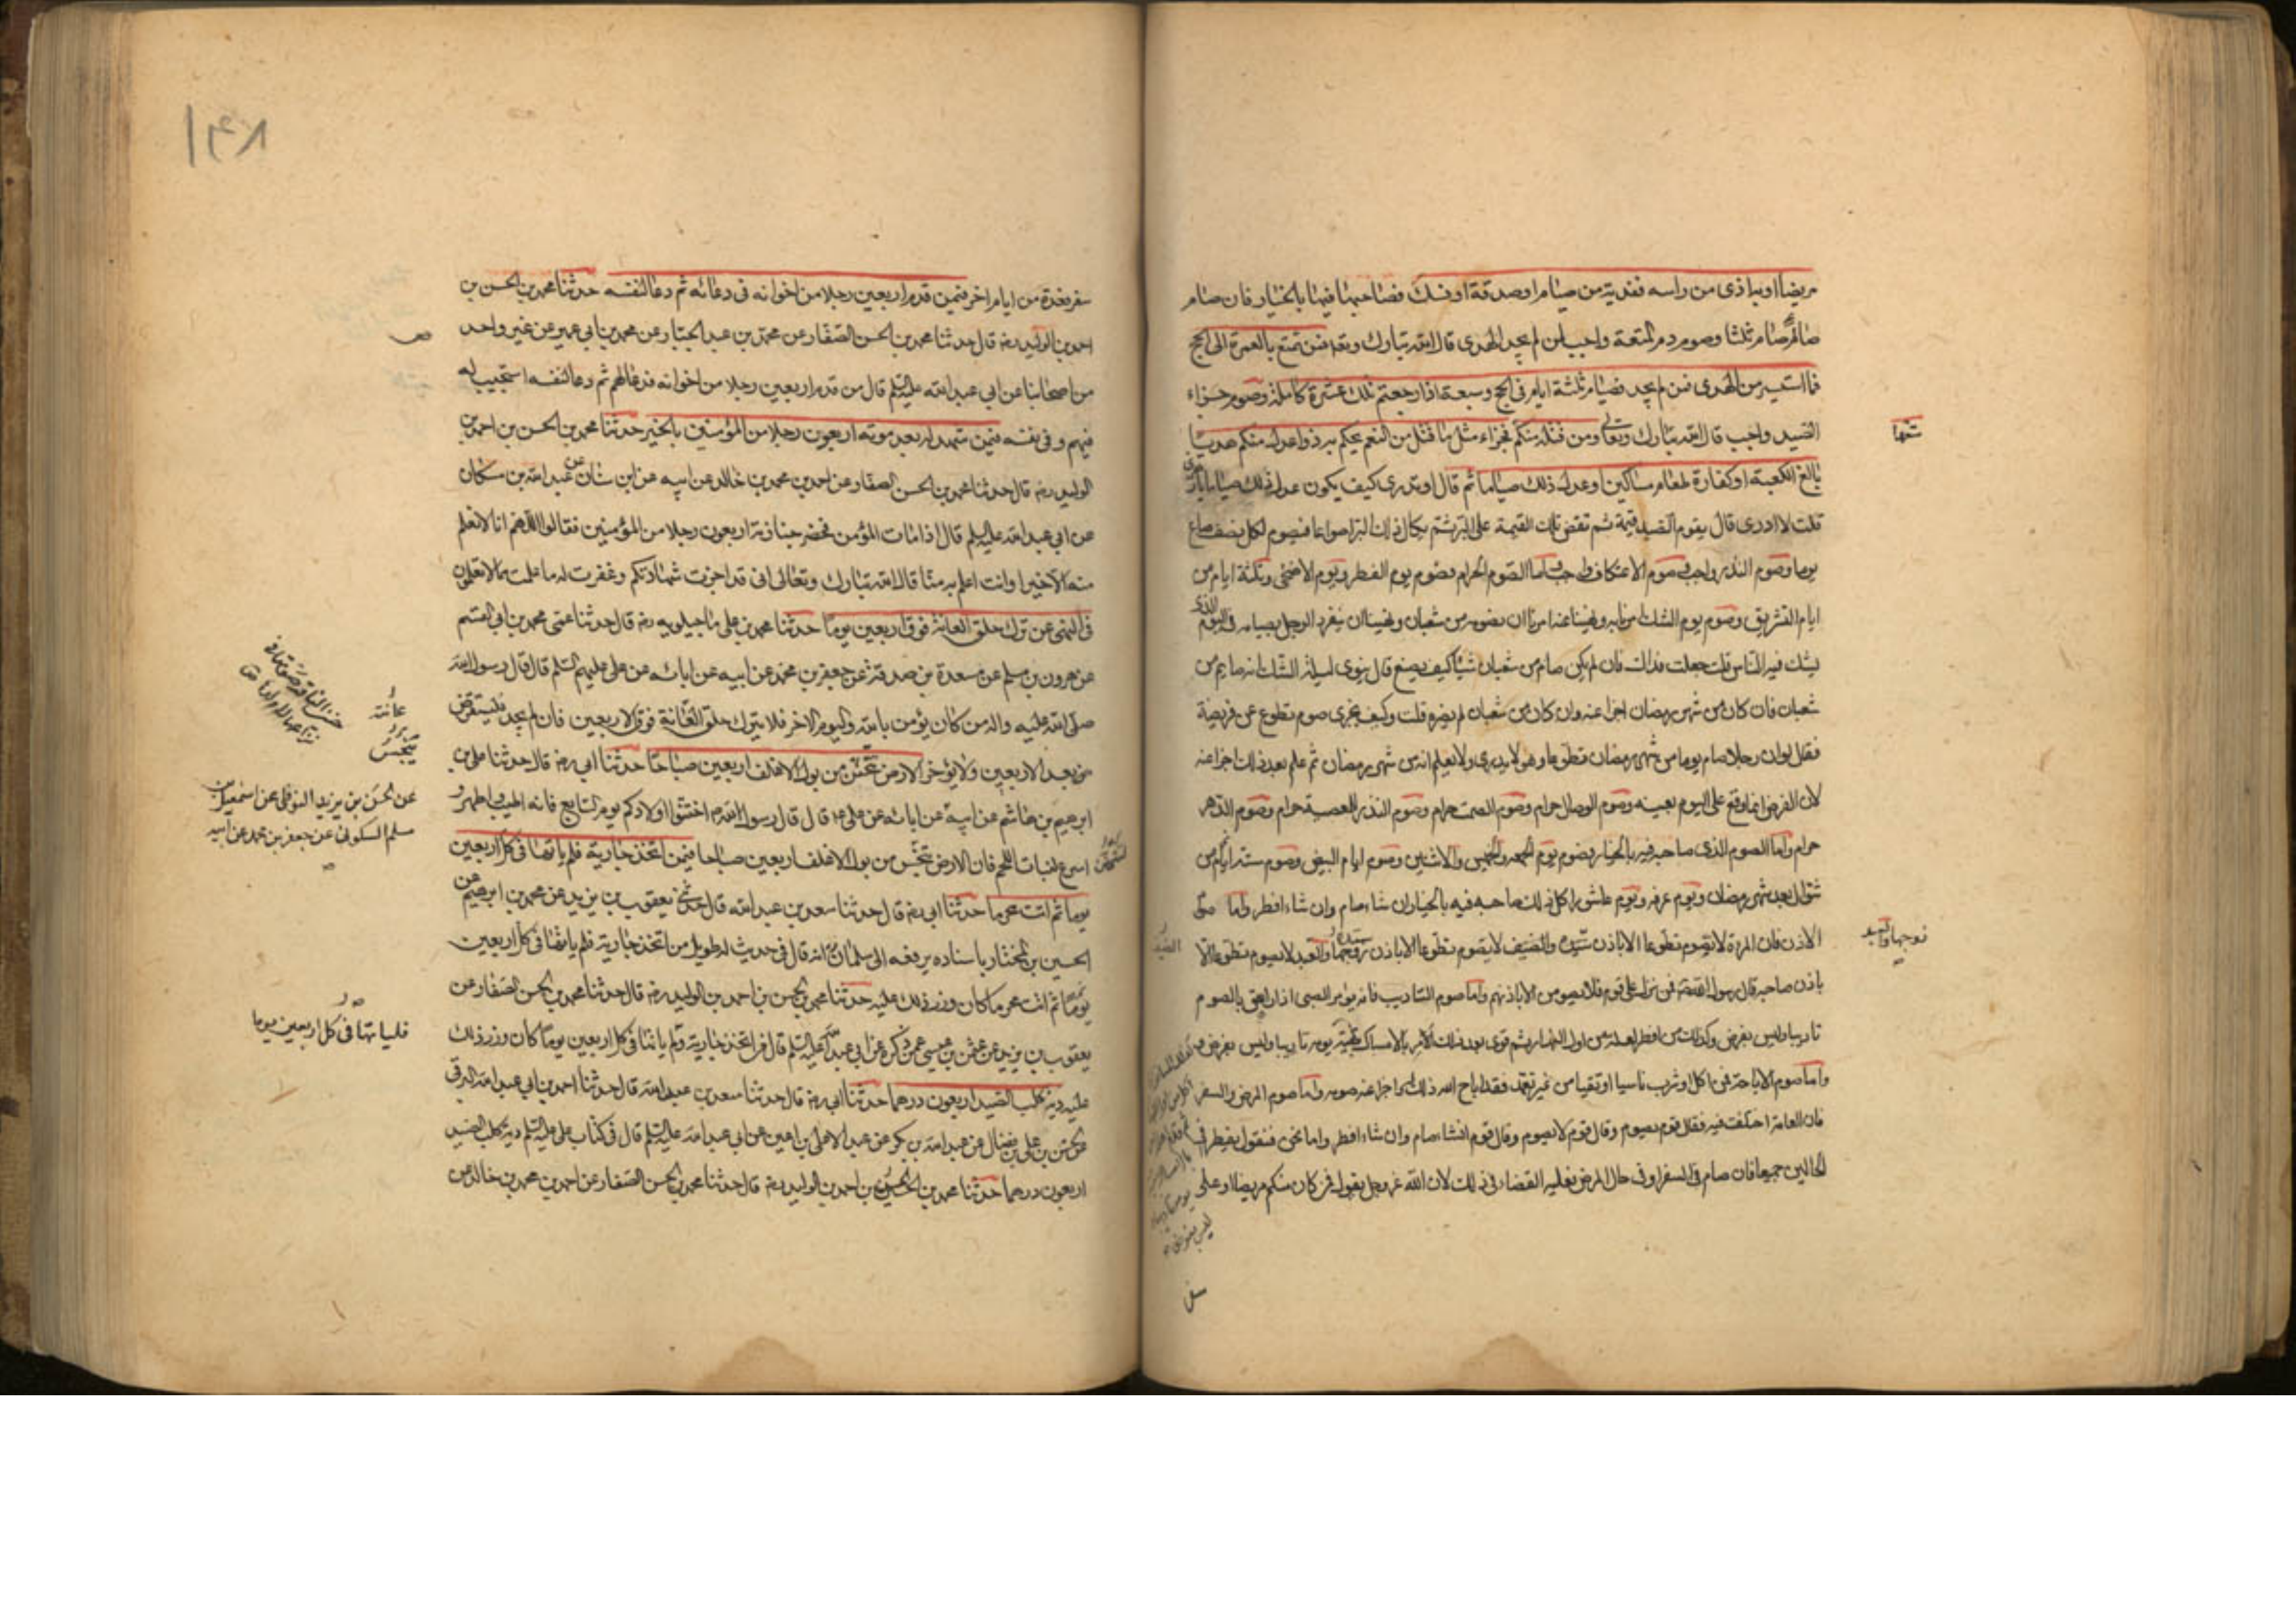 مريضا او به اذى من راسه ففدية من صيام او صدقة او نسك فصاحبها فيها بالخيار فان صام
صام ثلثا وصوم دم المتعة واجب لمن لم يجد الهدى قال الله تبارك وتعالى فمن تمتع بالعمرة الى الحج
فما استيسر من الهدى فمن لم يجد فصيام ثلثة ايام فى الحج وسبعة اذا رجعتم تلك عشرة كاملة وصوم جزاء
الصيد واجب قال الله تبارك وتعالى ومن قتله منكم فجزاء مثل ما قتل من النعم يحكم به ذوا عدل منكم هديا
بالغ الكعبة او كفارة طعام مساكين او عدل ذلك صياما ثم قال او تدرى كيف يكون عدل ذلك صياما يا زهرى
قلت لا ادرى قال يقوم الصيد قيمة ثم تفض تلك القيمة على البر ثم يكال ذلك البر اصواعا فيصوم لكل نصف صاع
يوما وصوم النذر واجب وصوم الاعتكاف واجب واما الصوم الحرام فصوم يوم الفطر ويوم الاضحى وثلثة ايام من
ايام التشريق وصوم يوم الشك امرنا به ونهينا عنه امرنا ان نصومه من شعبان ونهينا ان ينفرد الرجل بصيامه فى اليوم الذى
يشك فيه الناس قلت جعلت فداك فان لم يكن صام من شعبان شيئا كيف يصنع قال ينوى ليلة الشك انه صايم من
شعبان فان كان من شهر رمضان اجزا عنه وان كان من شعبان لم يضره قلت وكيف يجزى صوم تطوع عن فريضة
فقال لو ان رجلا صام يوما من شهر رمضان تطوعا وهو لا يدرى ولا يعلم انه من شهر رمضان ثم علم بعد ذلك اجزا عنه
لان الفرض انما وقع على اليوم بعينه وصوم الوصال حرام وصوم الصمت حرام وصوم النذر للمعصية حرام وصوم الدهر
حرام واما الصوم الذى صاحبه فيه بالخيار فصوم يوم الجمعه والخميس والاثنين وصوم ايام البيض وصوم ستة ايام من
شوال بعد شهر رمضان ويوم عرفه ويوم عاشورا كل ذلك صاحبه فيه بالخيار ان شاء صام وان شاء افطر واما صوم
الاذن فان المراة لا تصوم تطوعا الا باذن سيده والضيف لا يصوم تطوعا الا باذن زوجها والعبد لا يصوم تطوعا الا
باذن صاحبه قال رسول الله فمن نزل على قوم فلا يصومن الا باذنهم واما صوم التاديب فانه يؤمر الصبى اذا راهق بالصوم
تاديبا وليس بفرض وكذلك من افطر لعلة من اول النهار ثم قوى بعد ذلك امر بالامساك بقية يومه تاديبا وليس بفرض
واما صوم الاباحة فمن اكل او شرب ناسيا او تقيا من غير تعمد فقد اباح الله ذلك له واجزا عنه صومه واما صوم المرض والسفر
فان العامة اختلفت فيه فقال قوم يصوم وقال قوم لا يصوم وقال قوم ان شاء صام وان شاء افطر واما نحن فنقول يفطر فى
الحالين جميعا فان صام فى السفر او فى حال المرض فعليه القضاء فى ذلك لان الله عز وجل يقول فمن كان منكم مريضا او على
زوجها والعبد
١۴٨
سفر فعدة من ايام اخر فيمن قدم اربعين رجلا من اخوانه فى دعائه ثم دعا لنفسه حدثنا محمد بن الحسن بن
احمد بن الوليد رضه قال حدثنا محمد بن الحسن الصفار عن محمد بن عبد الجبار عن محمد بن ابى عمير عن غير واحد
من اصحابنا عن ابى عبد الله عليه السلم قال من قدم اربعين رجلا من اخوانه فدعا لهم ثم دعا لنفسه استجيب له
فيهم وفى نفسه فيمن شهد له بعد موته اربعون رجلا من المؤمنين بالخير حدثنا محمد بن الحسن بن احمد بن
الوليد رضه قال حدثنا محمد بن الحسن الصفار عن احمد بن محمد بن خالد عن ابيه عن ابن سنان عن عبد الله بن مسكان
عن ابى عبد الله عليه السلم قال اذا مات المؤمن فحضر جنازته اربعون رجلا من المؤمنين فقالوا اللهم انا لا نعلم
منه الا خيرا وانت اعلم به منا قال الله تبارك وتعالى انى قد اجزت شهادتكم وغفرت له ما علمت مما لا تعلمون
فى النهى عن ترك حلق العانة فوق اربعين يوما حدثنا محمد بن على ماجيلويه رضه قال حدثنا عمى محمد بن ابى القسم
عن هرون بن مسلم عن مسعدة بن صدقة عن جعفر بن محمد عن ابيه عن ابائه عن على عليهم السلم قال قال رسول الله
صلى الله عليه واله من كان يؤمن بالله واليوم الاخر فلا يترك حلق العانة فوق الاربعين فان لم يجد فليستقرض
من بعد الاربعين ولا يؤخر الارض تنجس من بول الاقلف اربعين صباحا حدثنا ابى رضه قال حدثنا على بن
ابرهيم بن هاشم عن ابيه عن ابائه عن على ع قال قال رسول الله ص اختنوا اولادكم يوم السابع فانه اطيب واطهر و
اسرع لنبات اللحم فان الارض تنجس من بول الاقلف اربعين صباحا فيمن اتخذ جارية فلم ياتها فى كل اربعين
يوما ثم اتت محرما حدثنا ابى رضه قال حدثنا سعد بن عبد الله قال حدثنى يعقوب بن يزيد عن محمد بن ابرهيم عن
الحسين بن المختار باسناده يرفعه الى سلمان انه قال فى حديث له طويل من اتخذ جارية فلم ياتها فى كل اربعين
يوما ثم اتت محرما كان وزر ذلك عليه حدثنا محمد بن الحسن بن احمد بن الوليد رضه قال حدثنا محمد بن الحسن الصفار عن
يعقوب بن يزيد عن عثمن بن عيسى عمن ذكره عن ابى عبد الله عليه السلم قال من اتخذ جارية ولم ياتها فى كل اربعين يوما كان وزر ذلك
عليه دية كلب الصيد اربعون درهما حدثنا ابى رضه قال حدثنا سعد بن عبد الله قال حدثنا احمد بن ابى عبد الله البرقى
عن الحسن بن على بن فضال عن عبد الله بن بكير عن عبد الاعلى بن اعين عن ابى عبد الله عليه السلم قال فى كتاب على عليه السلم دية كلب الصيد
اربعون درهما حدثنا محمد بن الحسن بن احمد بن الوليد رضه قال حدثنا محمد بن الحسن الصفار عن احمد بن محمد بن خالد عن
عانته
تنجس
عن الحسين بن يزيد النوفلى عن اسمعيل بن
مسلم السكونى عن جعفر بن محمد عن ابيه
فلياتها فى كل اربعين يوما